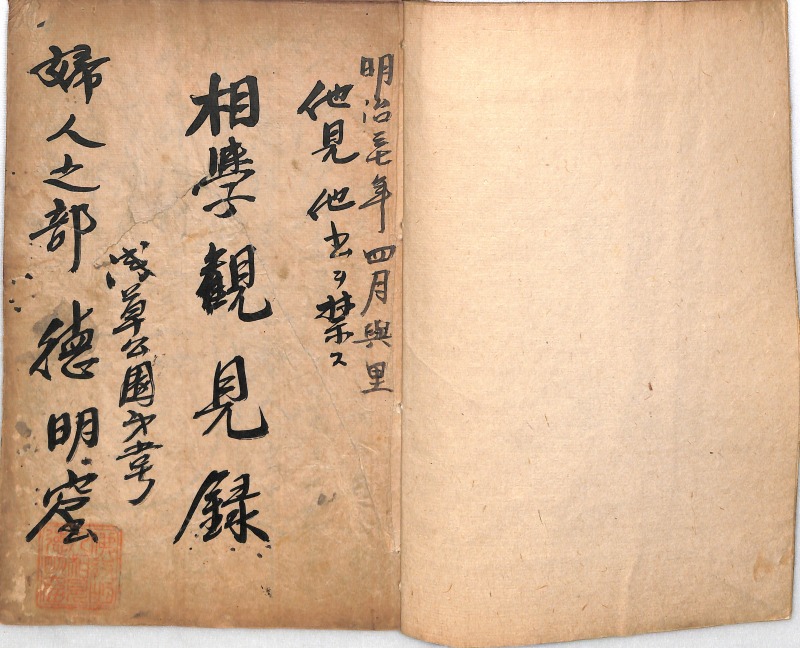 明治三七年四月與里
他見他出ヲ禁ス
相學觀見録
浅草公園
婦人之部 徳明窟